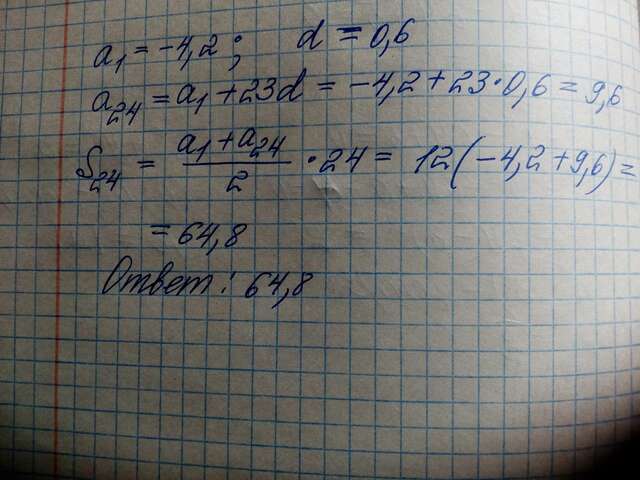 a₁ = -4,2 ; d = 0,6
a₂₄ = a₁ + 23d = -4,2 + 23 · 0,6 = 9,6
S₂₄ = (a₁ + a₂₄)/2 · 24 = 12(-4,2 + 9,6) =
= 64,8
Ответ: 64,8